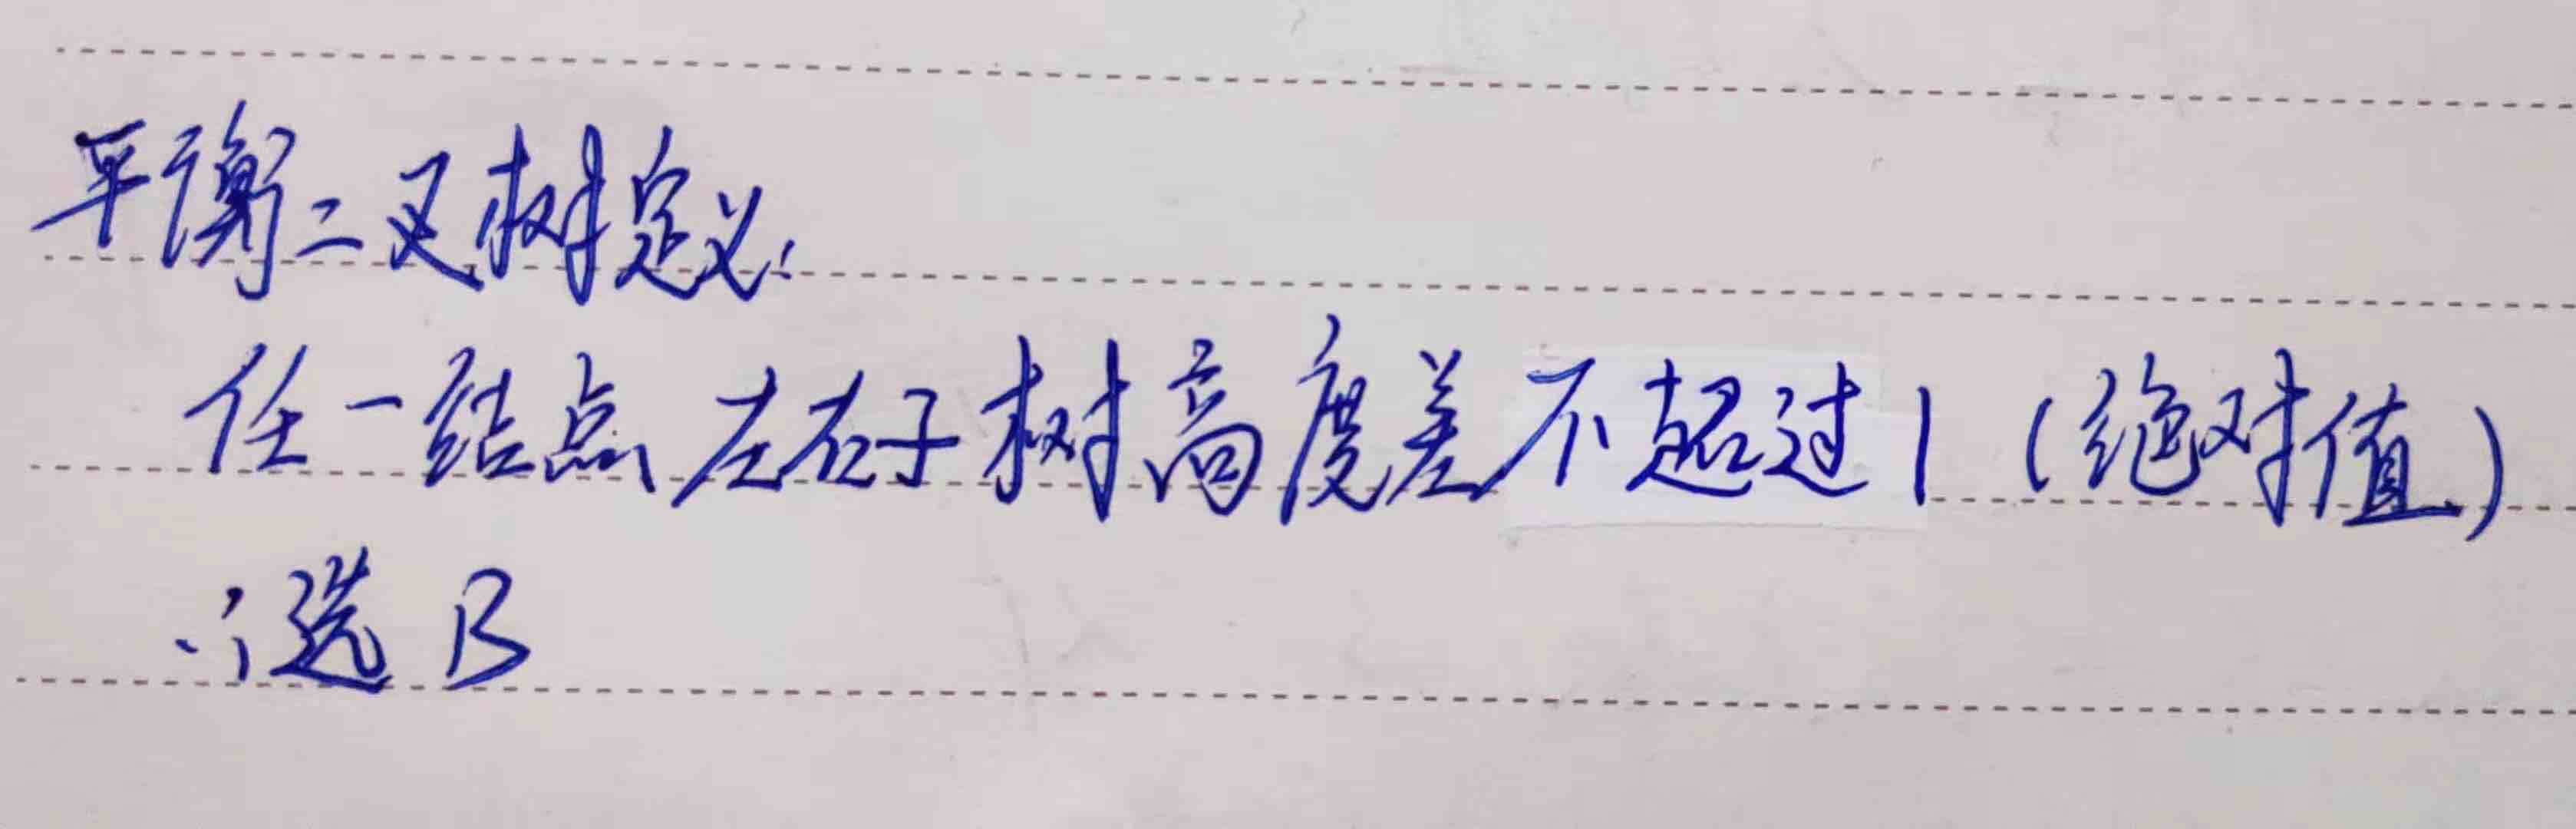 平衡二叉树定义:
任一结点左右子树高度差不超过1(绝对值)
∴选B